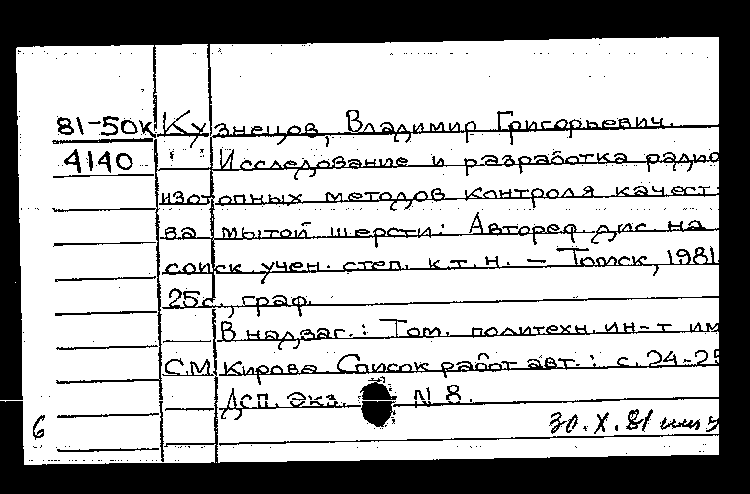 81-50к Кузнецов, Владимир Григорьевич.
4140 Исследование и разработка радио
изотопных методов контроля качест
ва мытой шерсти: Автореф. дис. на
соиск. учен. степ. к.т.н. – Томск, 1981
25с., граф.
В надзаг.: Том. политехн. ин-т им
С.М. Кирова. Список работ авт.: с. 24-25
Дсп. Экз. N 8.
6 30.X.81